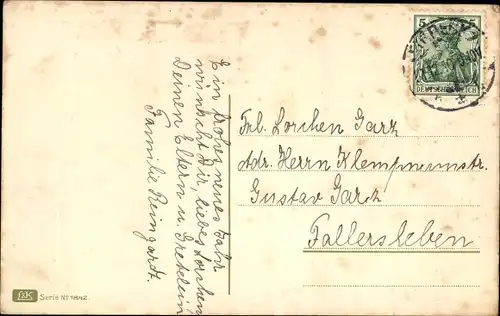 Ein frohes neues Jahr
wünscht Dir, liebes Lorchen,
Deinen Eltern u. Gretelein
Familie Reingardt.
5 5
DEUTSCHES REICH
Frl. Lorchen Garz
Adr. Herrn Klempnermstr.
Gustav Garz
Fallersleben
Serie No 1842